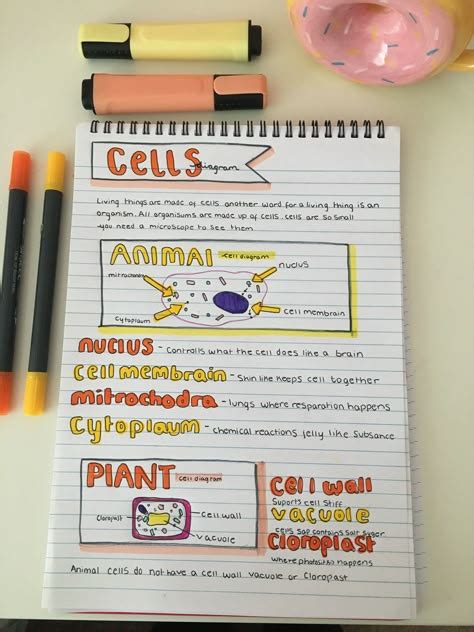 CELLS diagram
Living things are made of cells another word for a living thing is an
organism. All organisums are made up of cells. cells are so small
you need a microscope to see them
ANIMAL cell diagram
nuclus
mitrochondria
cytoplaum
cell membrain
nuclus - controlls what the cell does like a brain
cell membrain - skin like keeps cell together
mitrochodra - lungs where resparation happens
cytoplaum - chemical reactions jelly like substance
PLANT cell diagram
cloropast
cell wall
vacuole
cell wall
suports cell stiff
vacuole
cells sap contains salt suger
cloroplast
where photosithis happens
Animal cells do not have a cell wall vacuole or cloropast